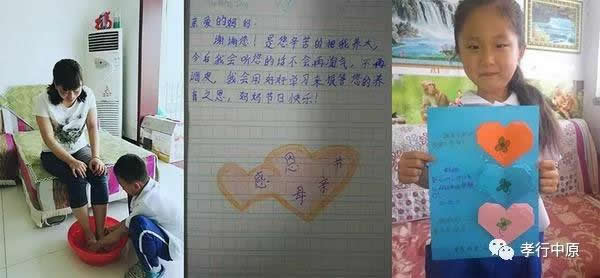 亲爱的妈妈：
谢谢您！是您辛苦的把我养大，
今后我会听您的话不会再淘气，不再
调皮，我会用好好学习来报答您的养
育之恩，妈妈节日快乐！
感恩母亲节
孝行中原